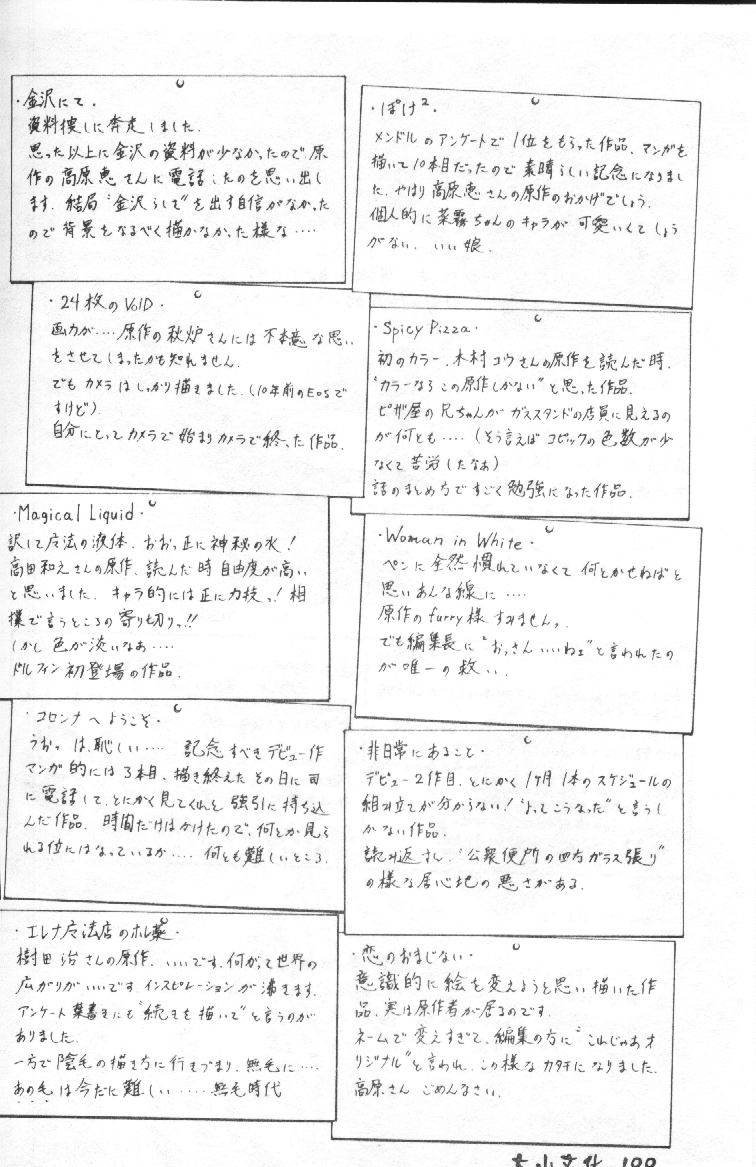 ・金沢にて・
資料捜しに奔走しました。
思った以上に金沢の資料が少なかったので、原
作の高原恵さんに電話したのを思い出し
ます。結局"金沢らしさ"を出す自信がなかった
ので背景をなるべく描かなかった様な‥‥
・24枚のVOID・
画力が‥‥原作の秋炉さんには不本意な思い
をさせてしまったかも知れません。
でもカメラはしっかり描きました。(10年前のEOSで
すけど)
自分にとってカメラで始まりカメラで終った作品。
・Magical Liquid・
訳して魔法の液体。おおっ正に神秘の水!
高田和え さんの原作、読んだ時自由度が高い
と思いました。キャラ的には正に力技っ!相
撲で言うところの寄り切りっ!!
しかし色が淡いなぁ‥‥
ドルフィン初登場の作品。
・コロンナへようこそ・
うおっ は、恥しい‥‥ 記念すべきデビュー作
マンガ的には3本目、描き終えたその日に司
に電話して、とにかく見てくれと強引に持ち込
んだ作品。時間だけはかけたので、何とか見ら
れる位にはなっているか‥‥ 何とも難しいところ。
・エレナ魔法店のホレ薬・
樹田治さんの原作、いいです。何がって世界の
広がりがいいです インスピレーションが沸きます。
アンケート葉書きにも"続きを描いて"と言うのが
ありました。
一方で陰毛の描き方に行きづまり、無毛に‥‥
あの毛は今だに難しい‥‥‥無毛時代
・ぽけ²・
メンドルのアンケートで1位をもらった作品、マンガを
描いて10本目だったので素晴らしい記念になりまし
た。やはり高原恵さんの原作のおかげでしょう。
個人的に菜霧ちゃんのキャラが可愛いくてしょう
がない。いい娘。
・Spicy Pizza・
初のカラー、木村コウさんの原作を読んだ時、
"カラーならこの原作しかない"と思った作品。
ピザ屋の兄ちゃんがガススタンドの店員に見えるの
が何とも‥‥(そう言えばコピックの色数が少
なくて苦労したなぁ)
話のまとめ方ですごく勉強になった作品。
・Woman in White・
ペンに全然慣れていなくて何とかせねばと
思いあんな線に‥‥
原作のfurry様すみませんっ
でも編集長に"おっさんいいねェ"と言われたの
が唯一の救い。
・非日常にあること・
デビュー2作目。とにかく1ヶ月1本のスケジュールの
組み立てが分からない!"よってこうなった"と言うし
かない作品。
読み返すし、"公衆便所の四方ガラス張り"
の様な居心地の悪さがある。
・恋のおまじない・
意識的に絵を変えようと思い描いた作
品、実は原作者が居るのです。
ネームで変えすぎて、編集の方に"これじゃあオ
リジナル"と言われ、この様なカタチになりました。
高原さん ごめんなさい。